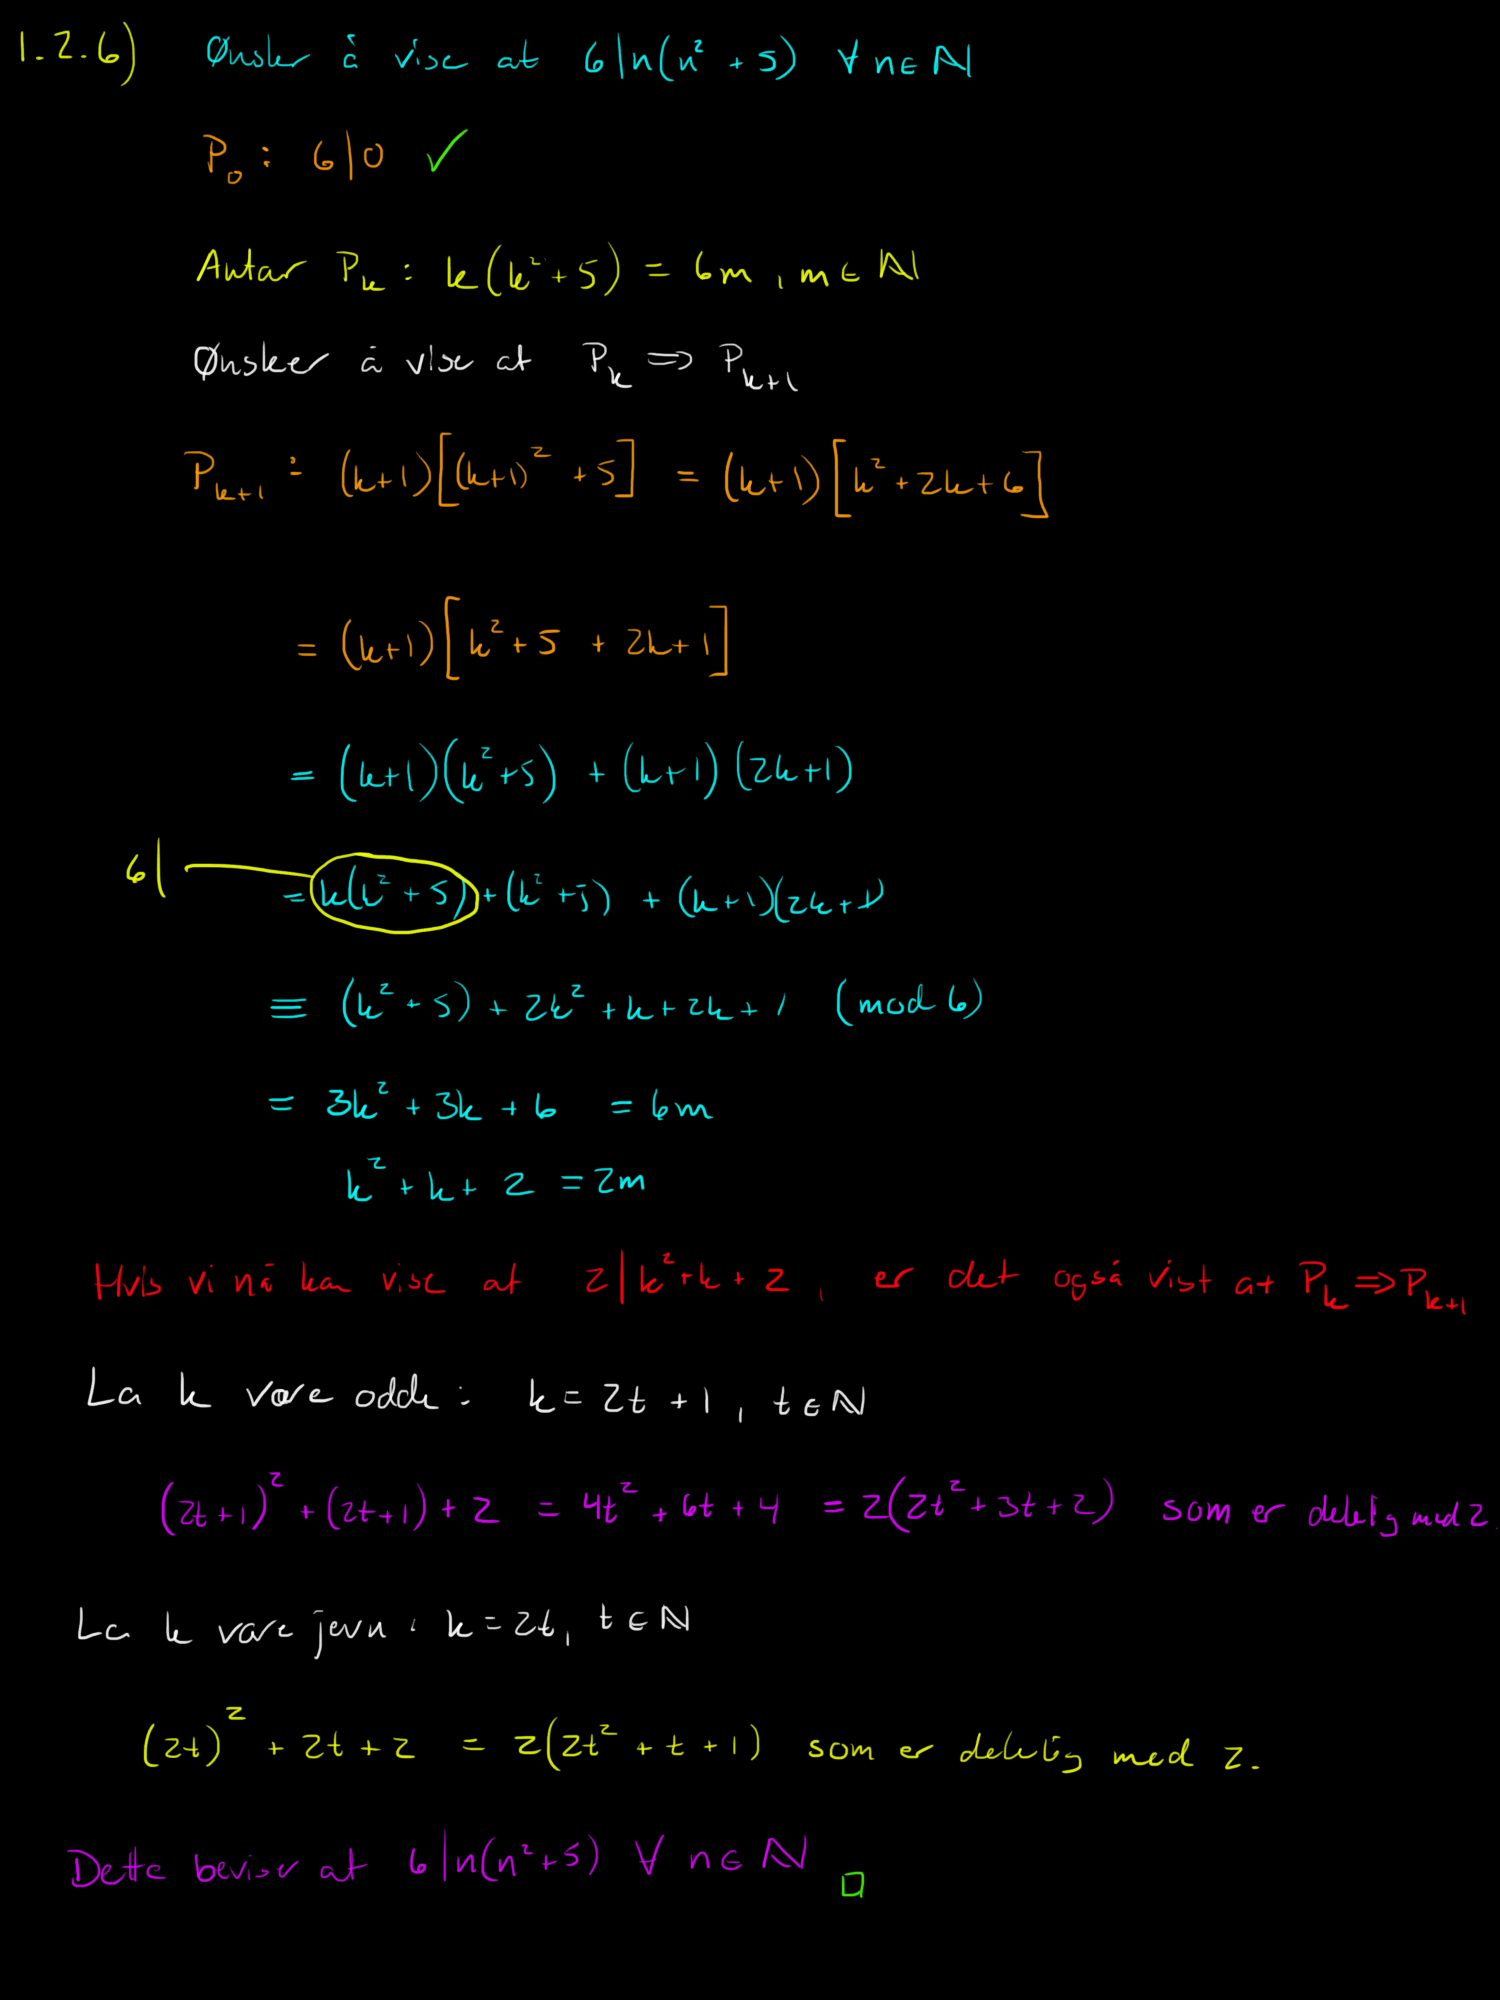 1.2.6) Ønsker å vise at 6|n(n² + 5) ∀ n∈ℕ
P₀ : 6|0 ✓
Antar Pₖ : k(k² + 5) = 6m , m ∈ ℕ
Ønsker å vise at Pₖ ⇒ Pₖ₊₁
Pₖ₊₁ : (k+1)[(k+1)² + 5] = (k+1)[k² + 2k + 6]
= (k+1)[k² + 5 + 2k + 1]
= (k+1)(k² + 5) + (k+1)(2k+1)
6| = k(k² + 5) + (k² + 5) + (k+1)(2k+1)
≡ (k² + 5) + 2k² + k + 2k + 1 (mod 6)
= 3k² + 3k + 6 = 6m
k² + k + 2 = 2m
Hvis vi nå kan vise at 2|k² + k + 2 , er det også vist at Pₖ ⇒ Pₖ₊₁
La k være odde : k = 2t + 1 , t ∈ ℕ
(2t+1)² + (2t+1) + 2 = 4t² + 6t + 4 = 2(2t² + 3t + 2) som er delelig med 2.
La k være jevn : k = 2t, t ∈ ℕ
(2t)² + 2t + 2 = 2(2t² + t + 1) som er delelig med 2.
Dette beviser at 6|n(n² + 5) ∀ n ∈ ℕ □